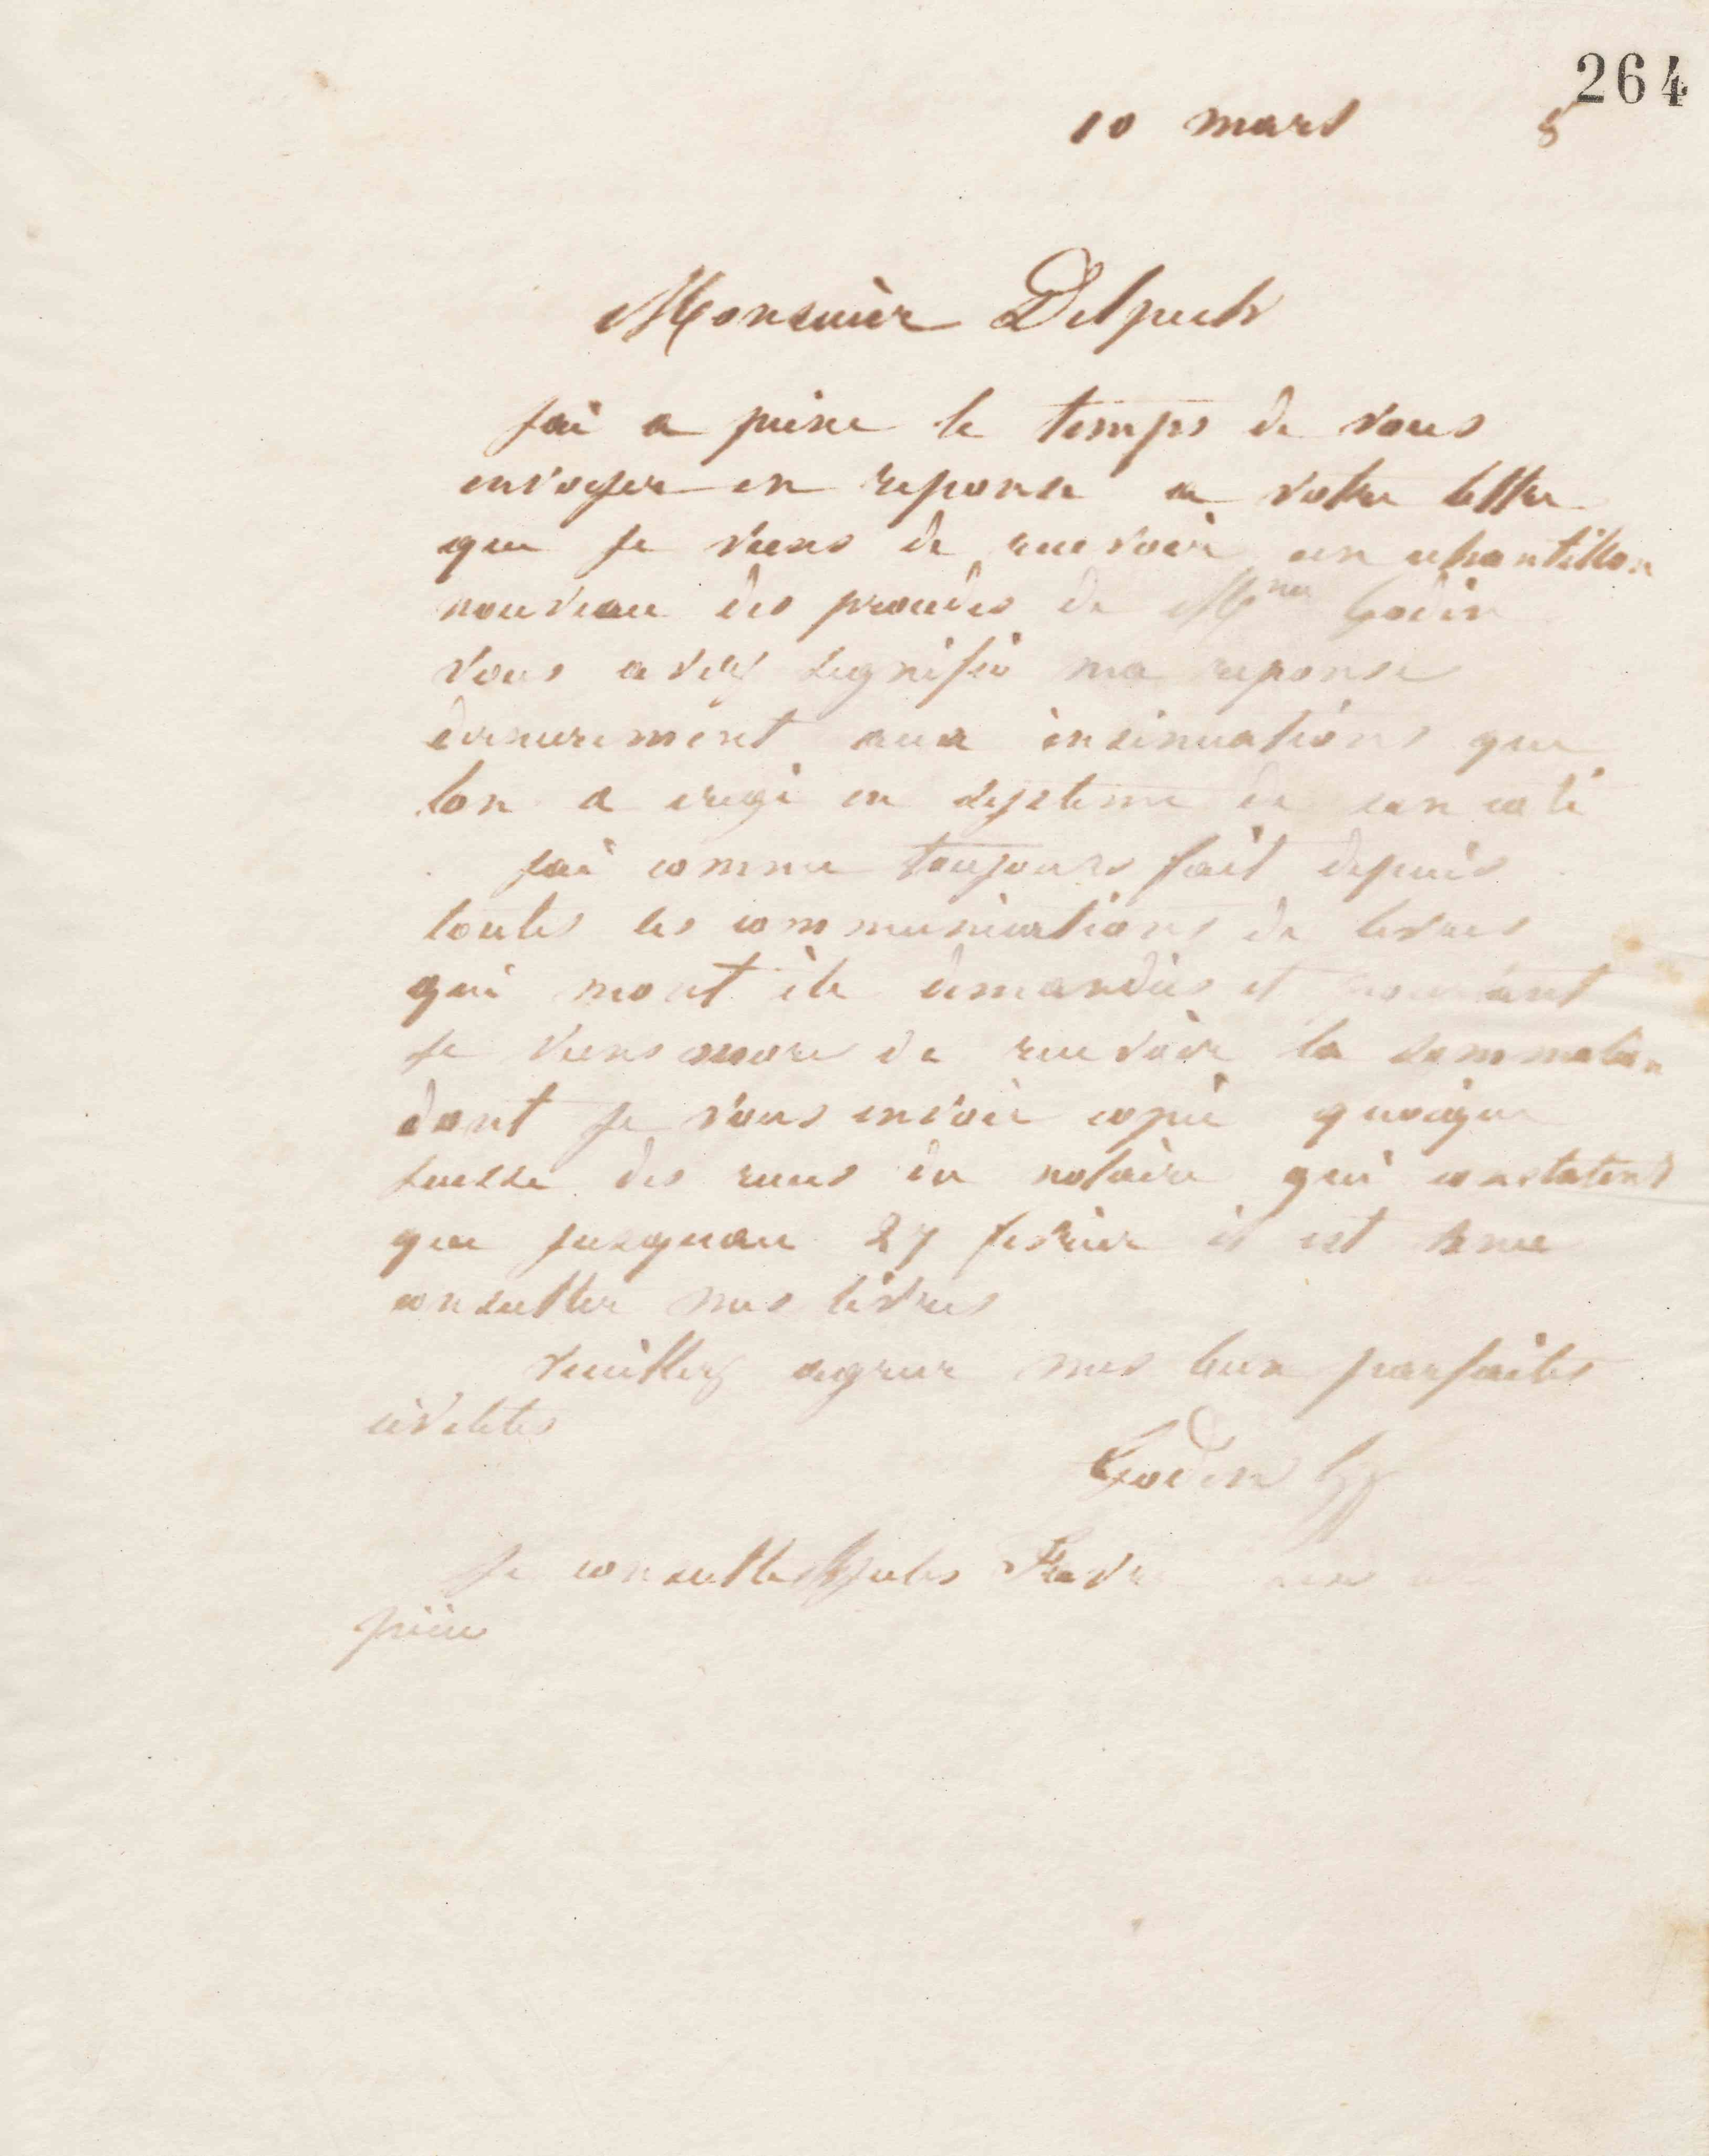 264
10 mars 5
Monsieur Delpech
jai a peine le temps de vous
envoyer en reponse a votre lettre
que je viens de recevoir un echantillon
nouveau des procedes de Mme Godin
vous avez signifié ma reponse
dernierement aux insinuations que
lon a erigé en systeme de son coté
jai comme toujours fait depuis
toutes les communications de livres
qui mont ete demandées et
je viens encore de recevoir la sommation
dont je vous envoie copie quoique
jeusse des recus du notaire qui constatent
que jusquau 27 fevrier il est venu
consulter mes livres
veuillez agreer mes bien parfaites
civilités
Godin
Je consulte Jules Favre